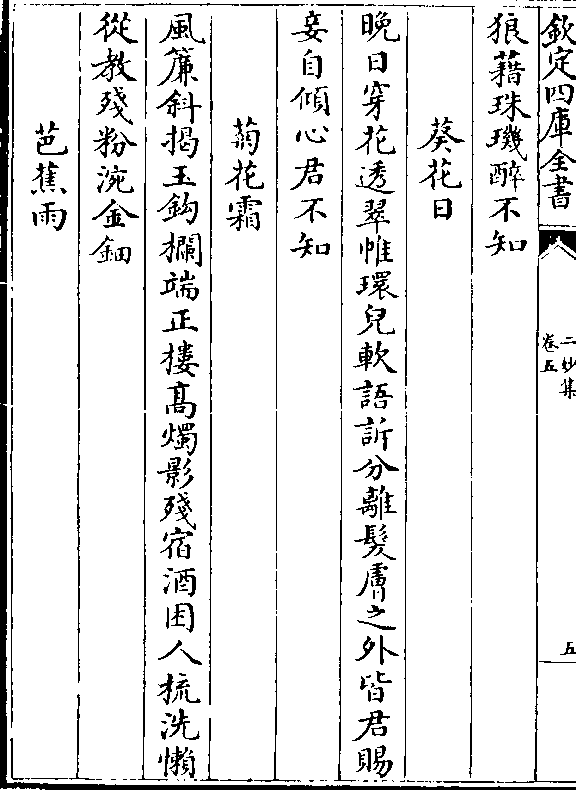 欽定四庫全書
二妙集
卷五
五
狼藉珠璣醉不知
葵花日
晚日穿花透翠帷環兒軟語訴分離髮膚之外皆君賜
妾自傾心君不知
菊花霜
風簾斜揭玉鈎攔端正樓髙燭影殘宿酒困人梳洗懶
從教殘粉涴金鈿
芭蕉雨